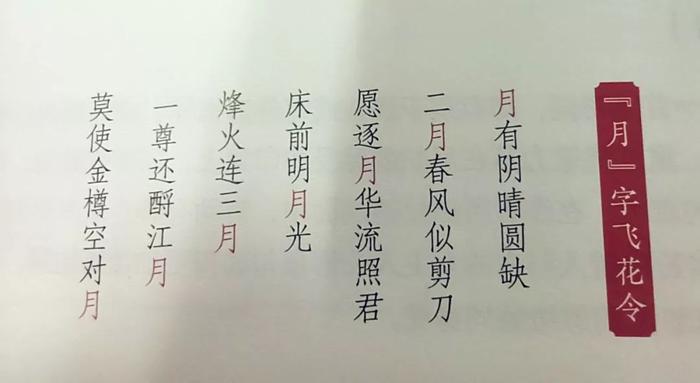 『月』字飞花令
月有阴晴圆缺
二月春风似剪刀
愿逐月华流照君
床前明月光
烽火连三月
一尊还酹江月
莫使金樽空对月